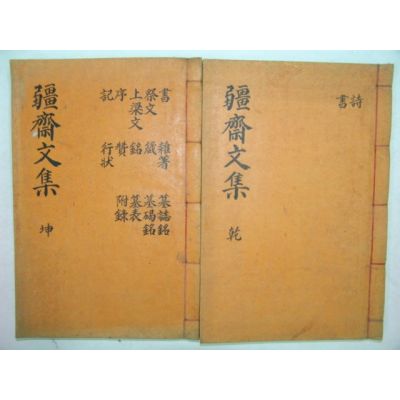 詩
書
疆齋文集 乾
書 雜著 墓誌銘
祭文 箴 墓碣銘
上梁文 銘 墓表
序 贊 附錄
記 行狀
疆齋文集 坤